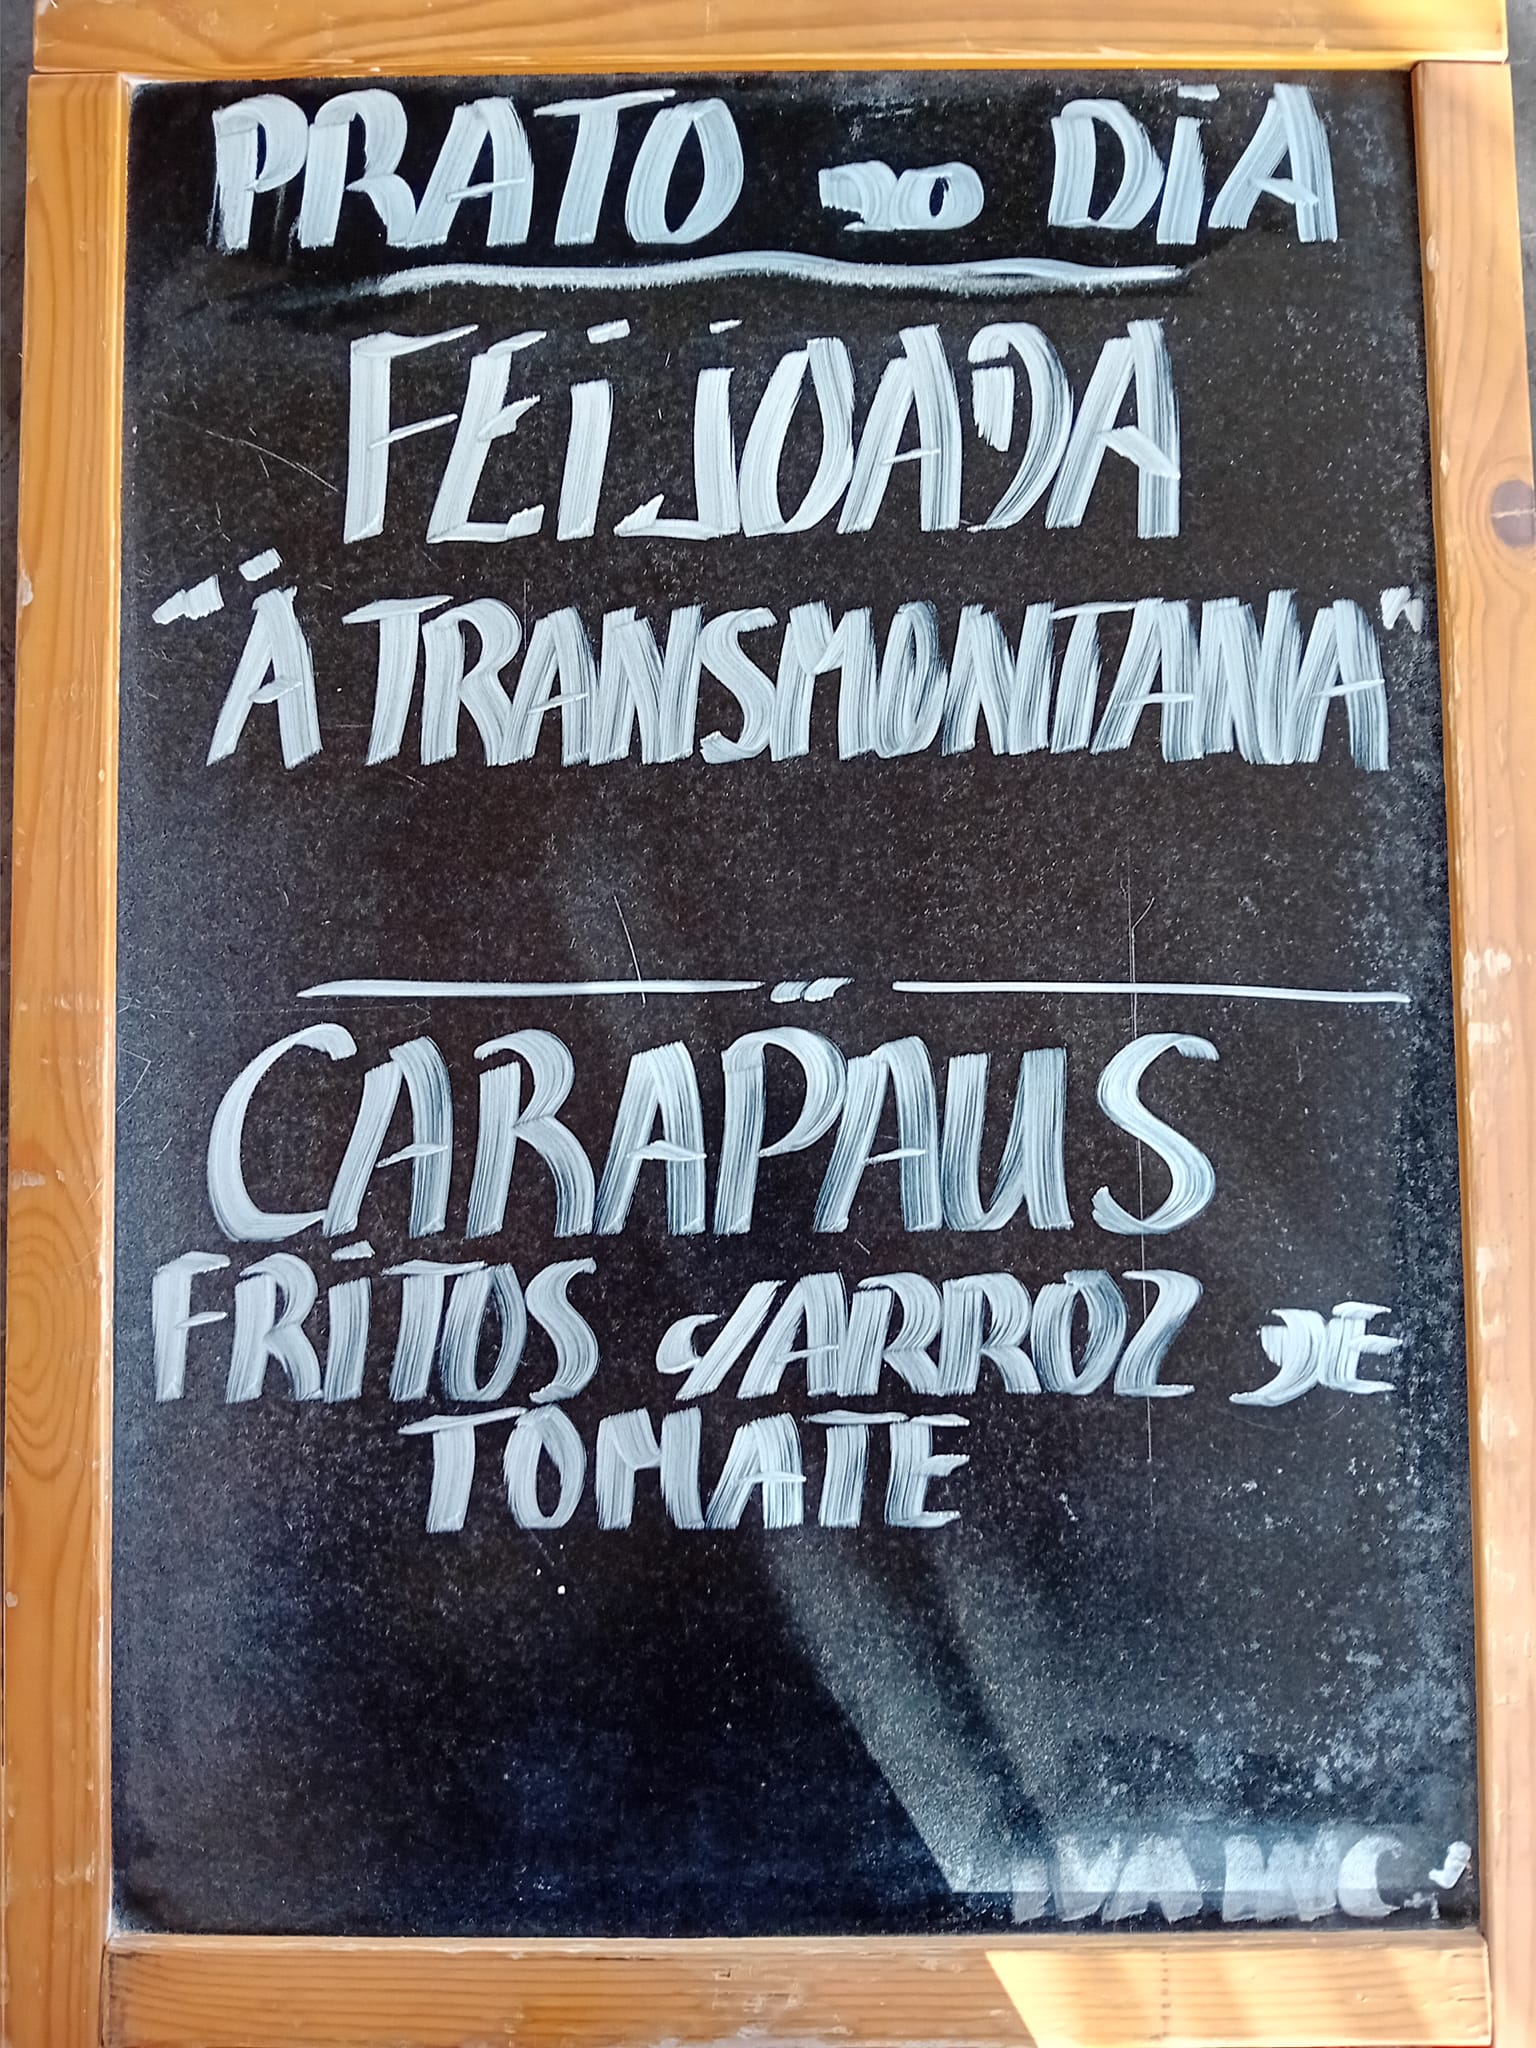 PRATO DO DIA
FEIJOADA
"À TRANSMONTANA"
CARAPAUS
FRITOS C/ARROZ DE
TOMATE
IVA INC.